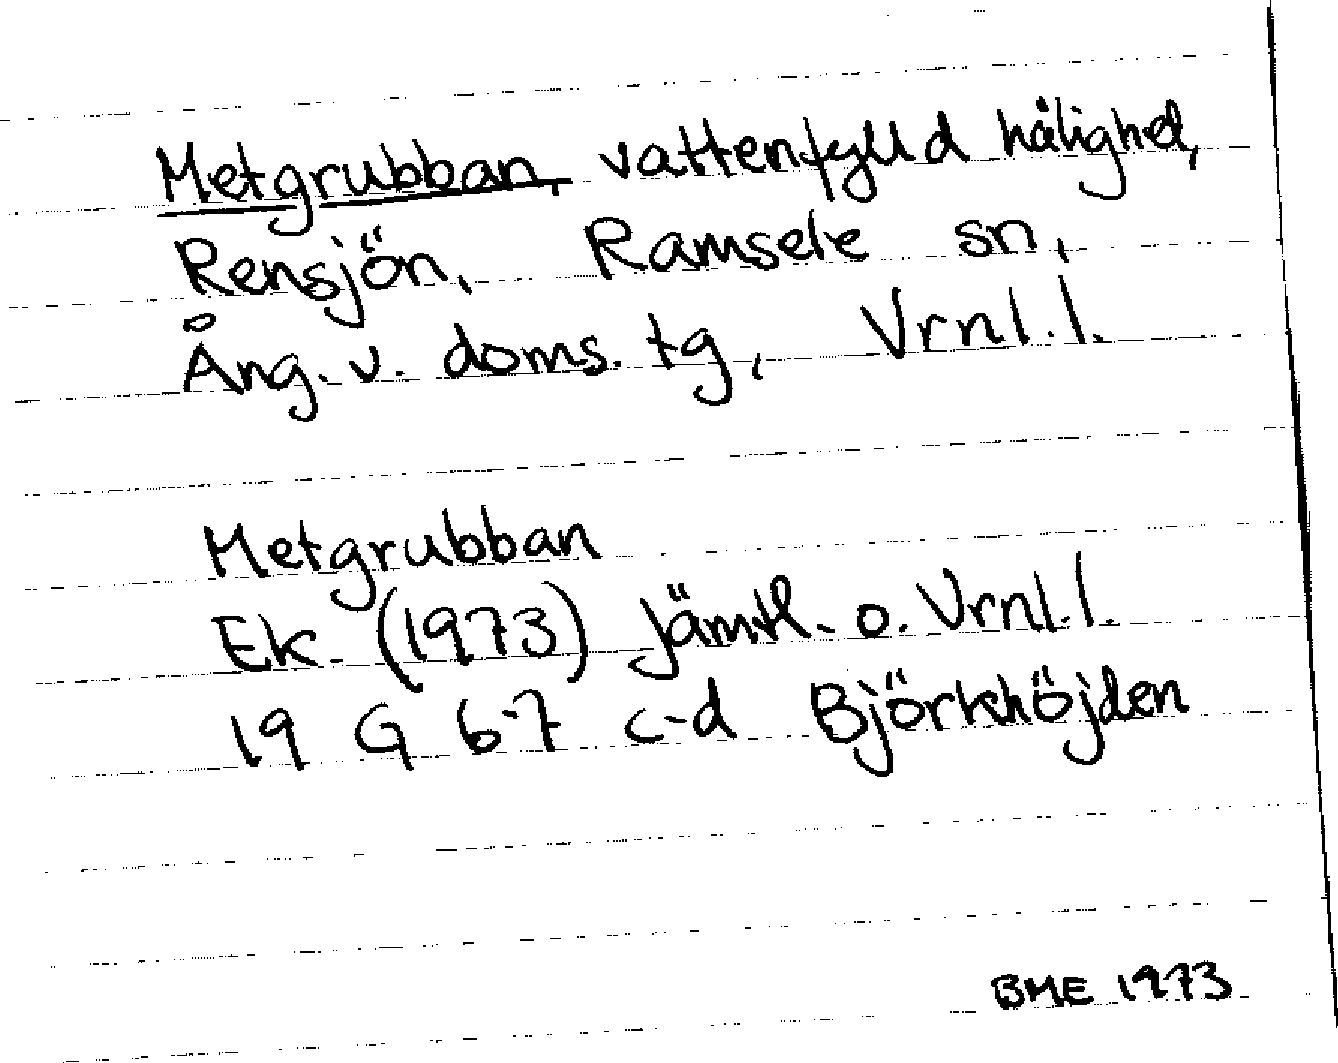 Metgrubban, vattenfylld hålighet,
Rensjön, Ramsele sn,
Ång. v. doms. tg, Vrnl.l.
Metgrubban
Ek. (1973) Jämtl. o. Vrnl.l.
19 G 6-7 c-d Björkhöjden
BME 1973